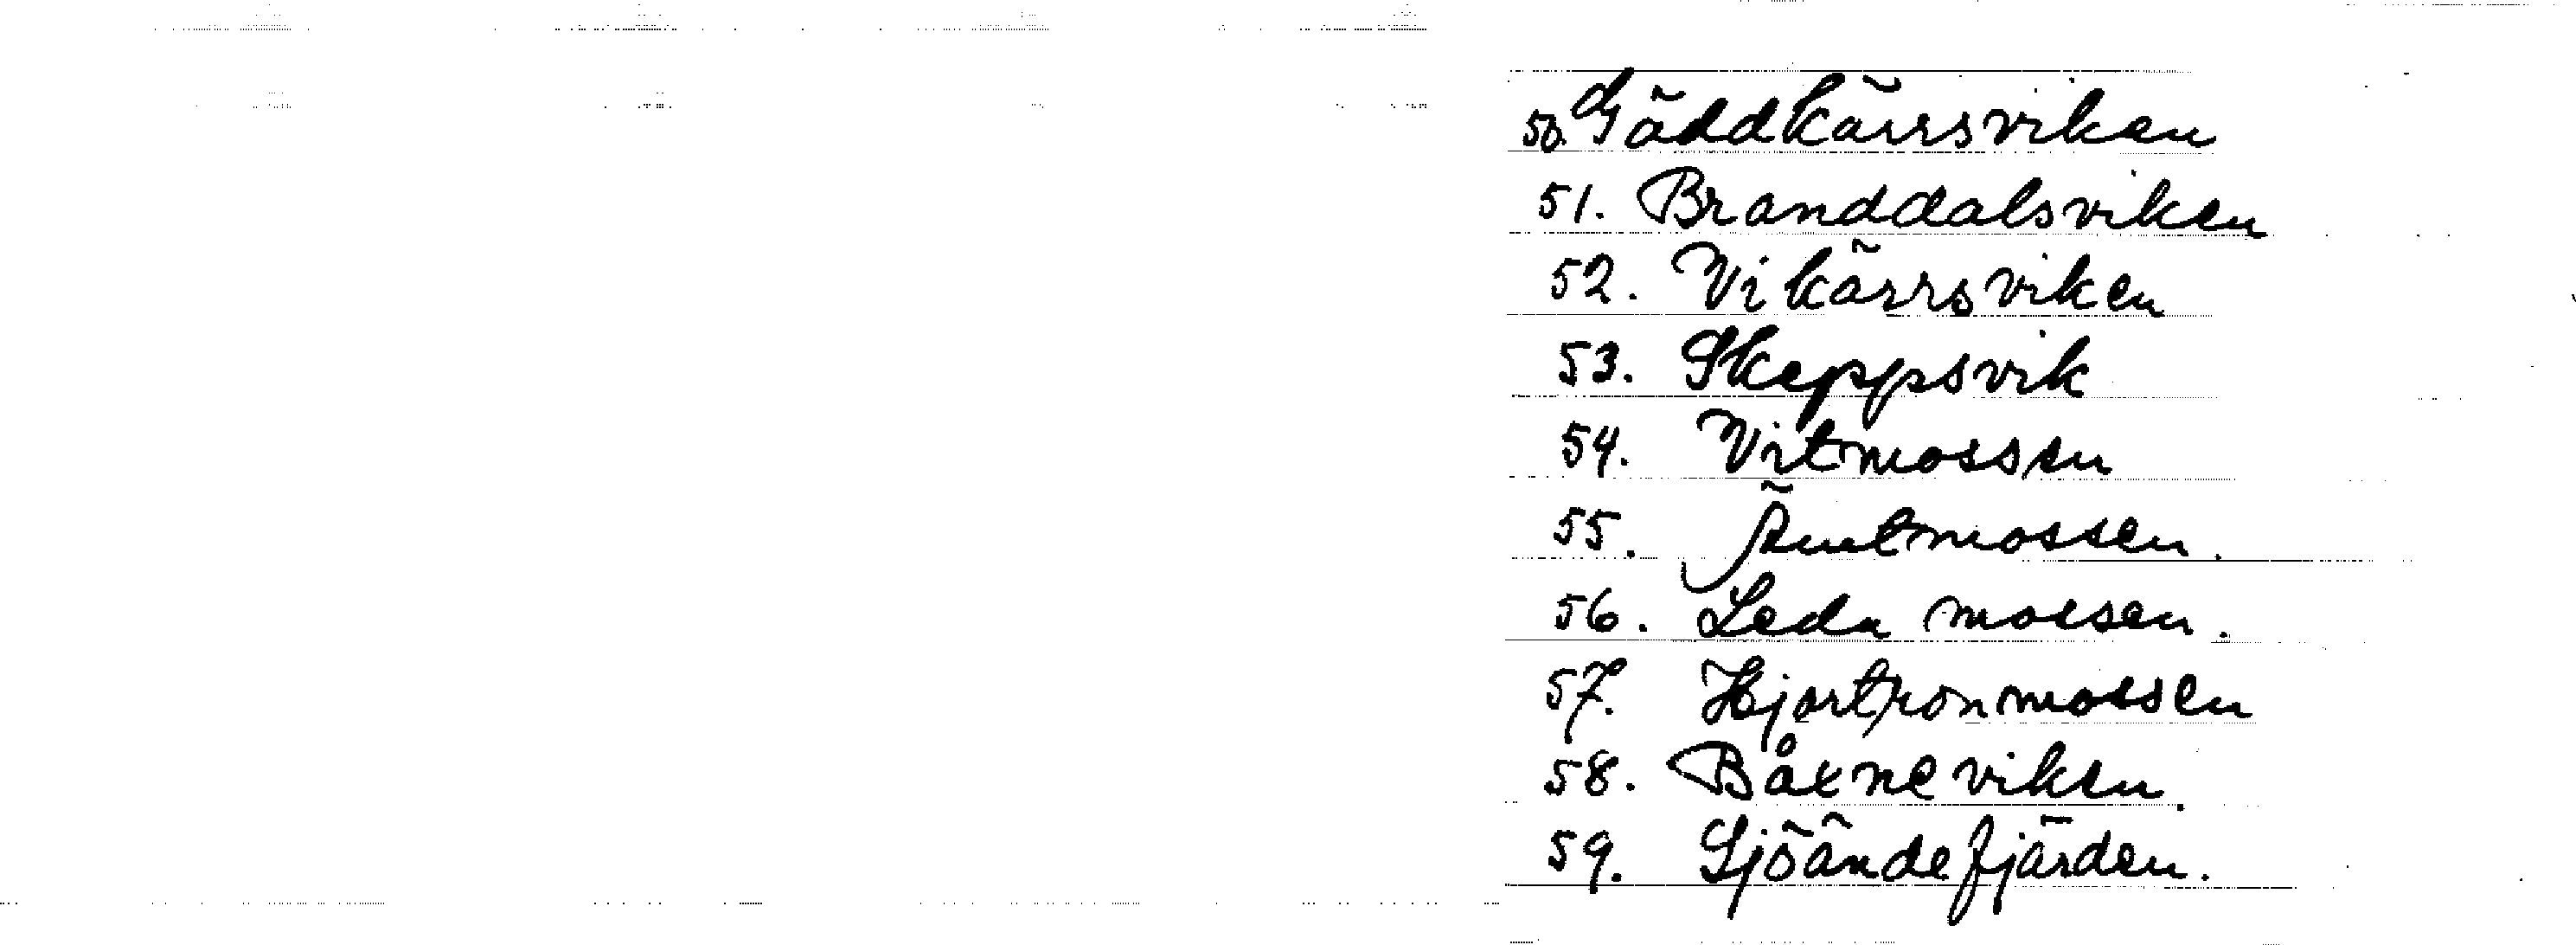 50. Gäddkärrsviken
51. Branddalsviken
52. Vikärrsviken
53. Skeppsvik
54. Vitmossen
55. Äntmossen.
56. Leda mossen.
57. Hjortronmossen
58. Båtneviken.
59. Sjöändefjärden.